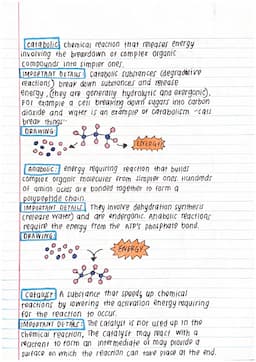 Catabolic: chemical reaction that releases energy
involving the breakdown of complex organic
compounds into simpler ones.
IMPORTANT DETAILS: Catabolic substances (degradative
reactions) break down substances and release
energy. (they are generally hydrolytic and exergonic).
For example a cell breaking down sugars into carbon
dioxide and water is an example of catabolism -cats
break things-
DRAWING:
ENERGY
Anabolic: energy requiring reaction that builds
complex organic molecules from simpler ones. Hundreds
of amino acids are bonded together to form a
polypeptide chain
IMPORTANT DETAILS: They involve dehydration synthesis
(release water) and are endergonic. Anabolic reactions
require the energy from the ATP's phosphate bond.
DRAWING:
ENERGY
Catalyst: A substance that speeds up chemical
reactions by lowering the activation energy requiring
for the reaction to occur.
IMPORTANT DETAILS: The catalyst is not used up in the
chemical reaction. The catalyst may react with a
reactant to form an intermediate or may provide a
surface on which the reaction can take place at the end.